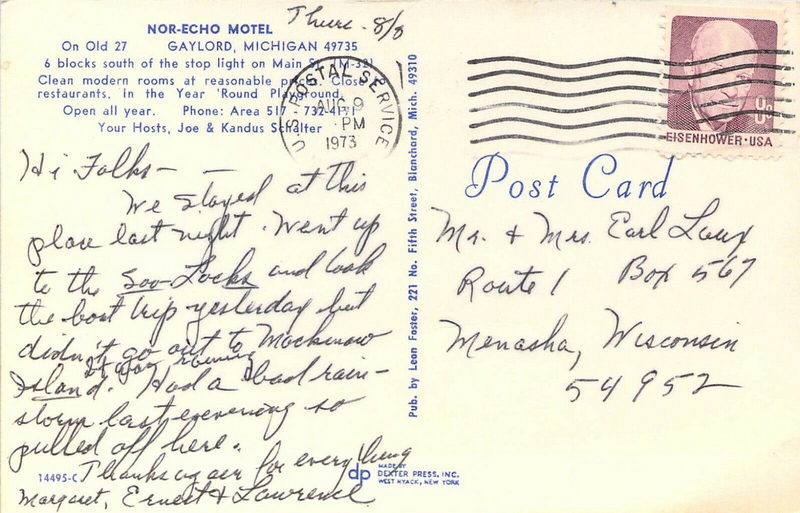 Thurs. 8/8
NOR-ECHO MOTEL
On Old 27 GAYLORD, MICHIGAN 49735
6 blocks south of the stop light on Main St. (M-32)
Clean modern rooms at reasonable prices. Close
restaurants, in the Year 'Round Playground.
Open all year. Phone: Area 517 - 732-4171
Your Hosts, Joe & Kandus Schalter
U.S. POSTAL SERVICE
AUG 9
PM
1973
8c
EISENHOWER·USA
Post Card
Hi Folks -
We stayed at this
place last night. Went up
to the Soo-Locks and took
the boat trip yesterday but
didn't go out to Mackinaw
It was raining
Island. Had a bad rain-
storm last evening so
pulled off here.
Thanks again for everything
Margaret, Ernest & Lawrence
Mr. & Mrs. Earl Laux
Route 1 Box 567
Menasha, Wisconsin
54952
Pub. by Leon Foster, 221 No. Fifth Street, Blanchard, Mich. 49310
14495-C
dp
MADE BY
DEXTER PRESS, INC.
WEST NYACK, NEW YORK